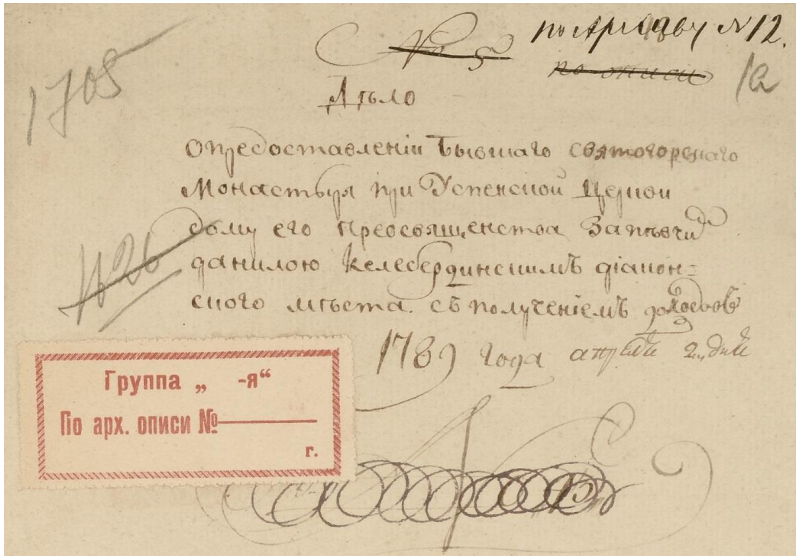 по архиву №12.
№ 5
по описи
1а
1705
Дѣло
Опредоставленіи Бывшаго святогорскаго
Монастыря при Успенской Церкви
дому его преосвященства Запѣвчи
данилою Келебердинскимъ діакон=
скаго мѣста. съ полученіемъ доходовъ
№26
1789 года апрѣля дня
Группа „ -я“
По арх. описи №
г.